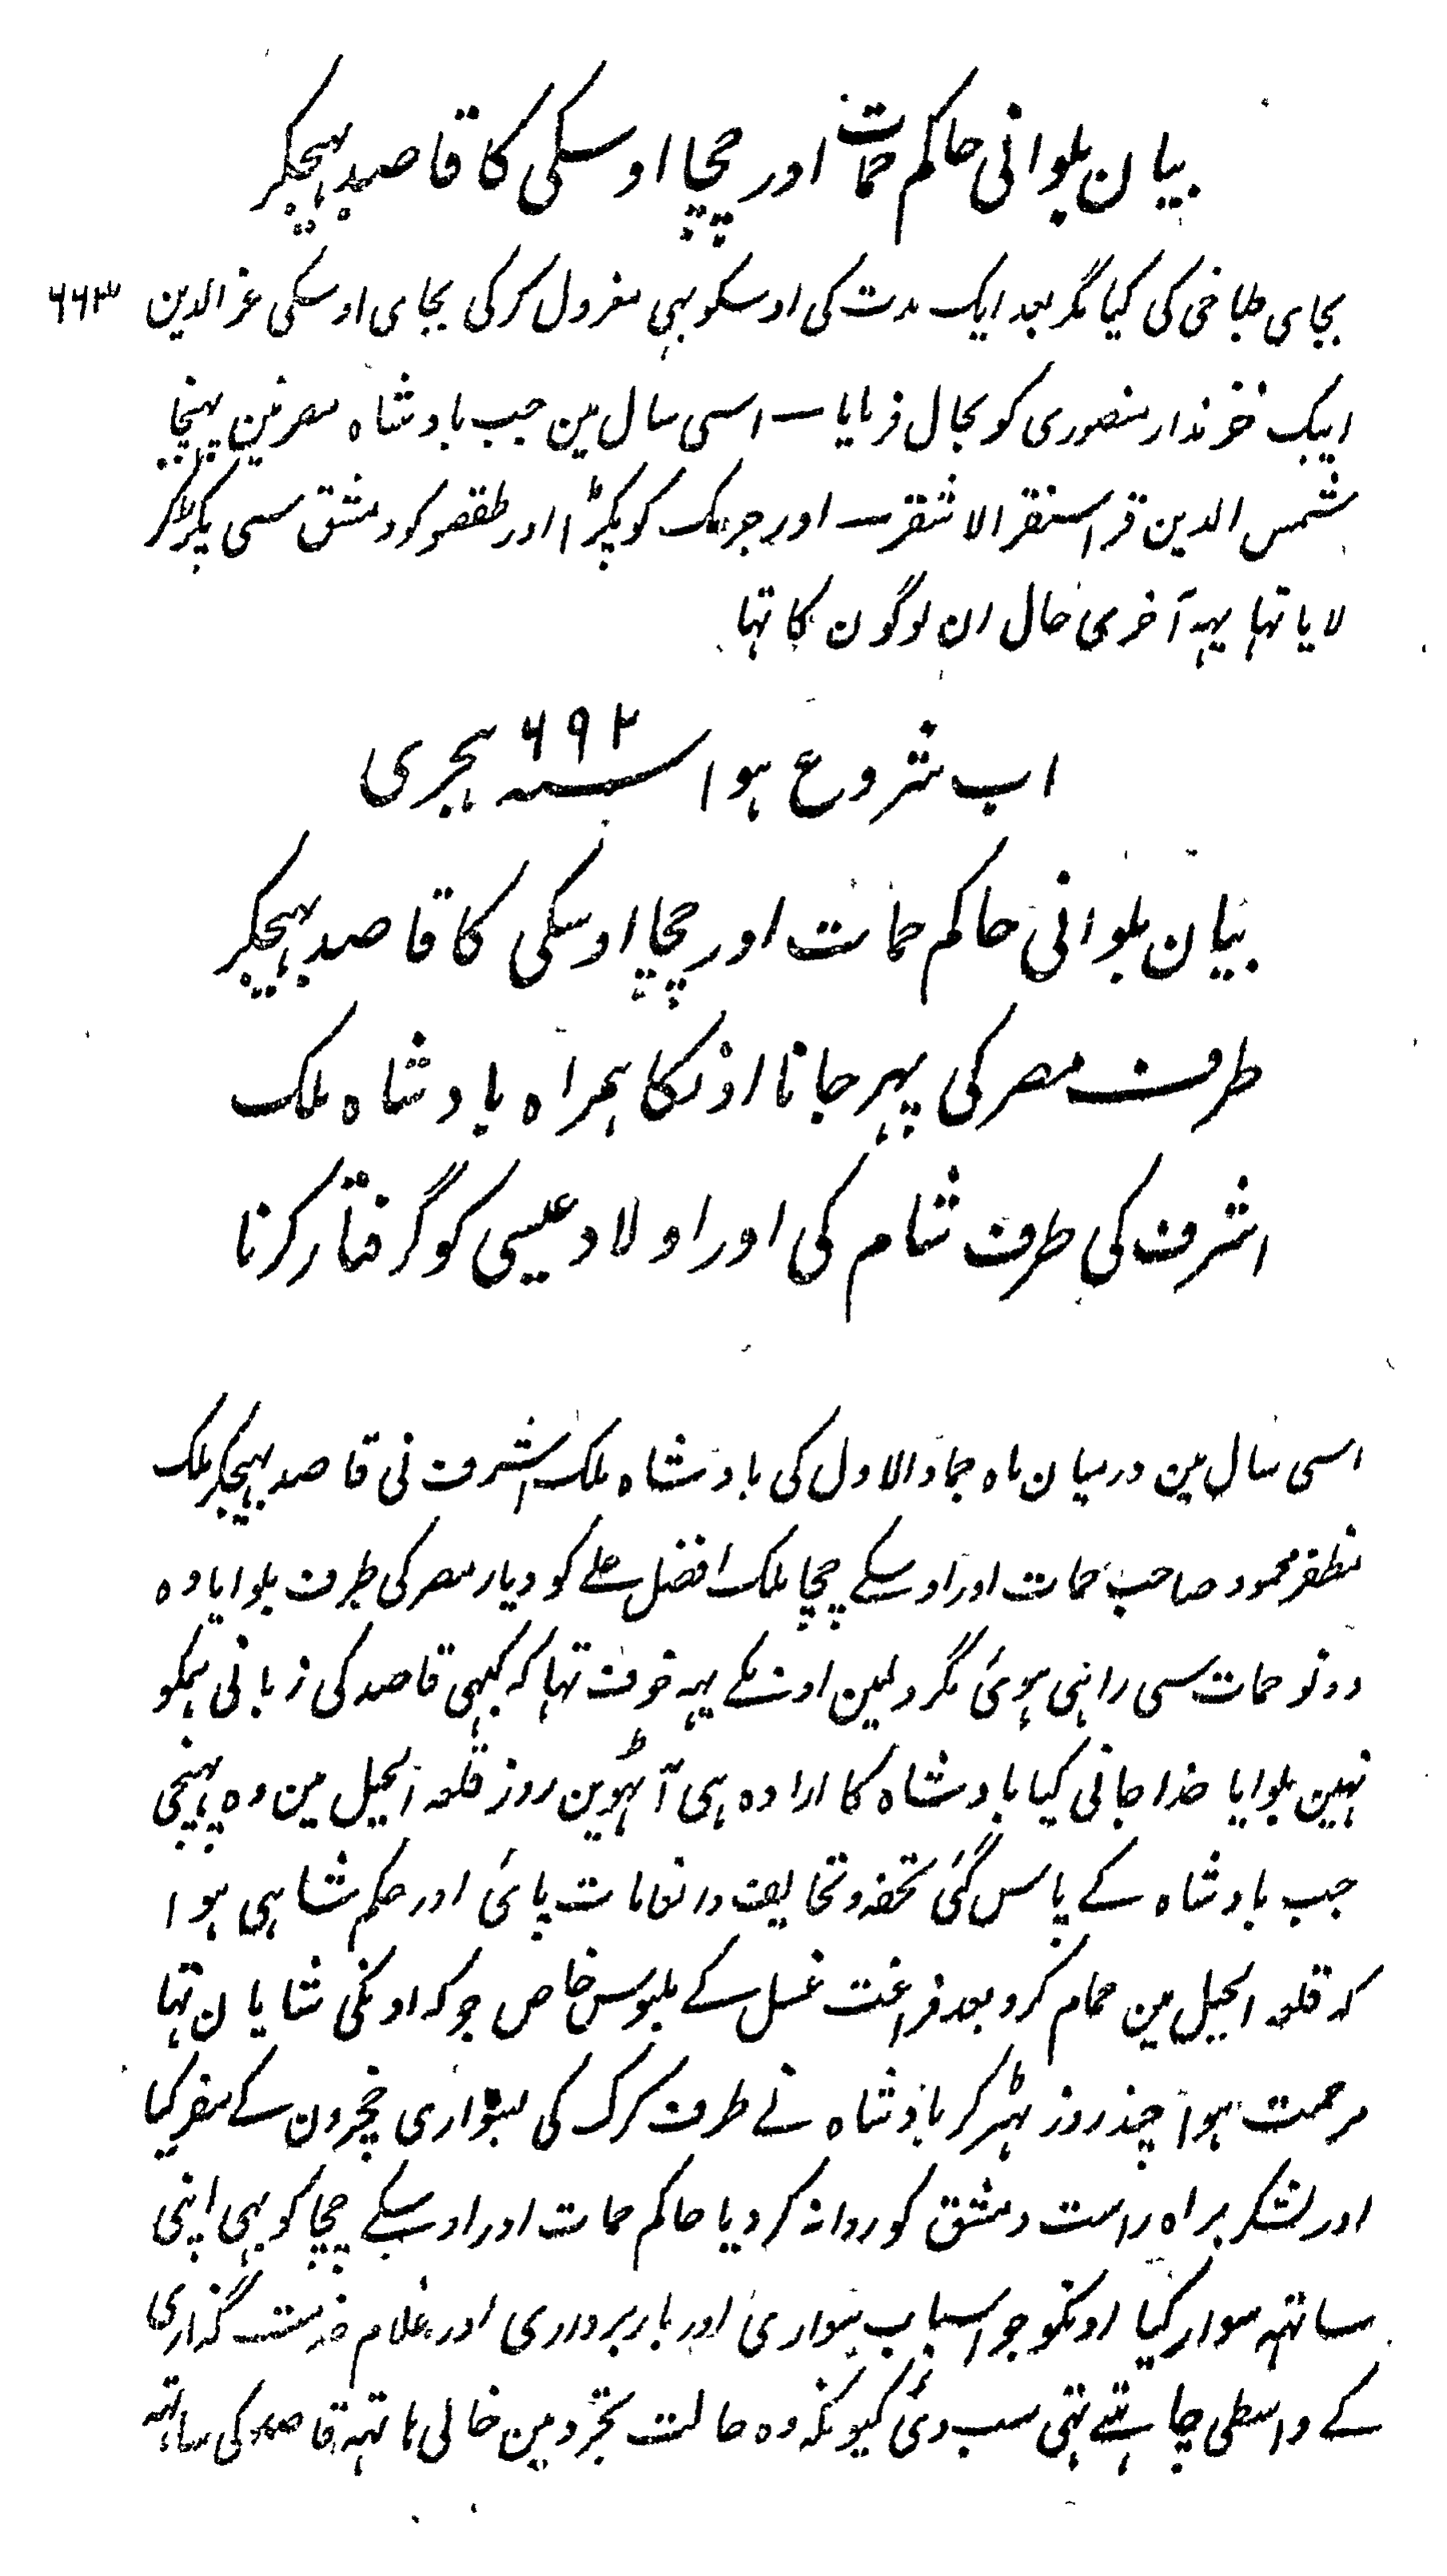 بیان بلوانی حاکم حمات اور چچا اوسکی کا قاصد بہیجکر
بجای طباخی کی کیا مگر بعد ایک مدت کی اوسکو بہی معزول کرکی بجای اوسکی عز الدین ۶۶۳
ایبک خزندار منصوری کو بحال فرمایا — اسی سال مین جب بادشاہ مصر مین پہنچا
شمس الدین قراسنقر الاشقر — اور جرمک کو پکڑا اور طقصو کو دمشق سی پکڑ کر
لایا تہا یہہ آخری حال ان لوگون کا تہا
اب شروع ہوا سنہ ۶۹۲ ہجری
بیان بلوانی حاکم حمات اور چچا اوسکی کا قاصد بہیجکر
طرف مصر کی پہر جانا اونکا ہمراہ بادشاہ ملک
اشرف کی طرف شام کی اور اولاد عیسی کو گرفتار کرنا
اسی سال مین درمیان ماہ جماد الاول کی بادشاہ ملک اشرف نی قاصد بہیجکر ملک
مظفر محمود صاحب حمات اور اوسکے چچا ملک افضل علے کو دیار مصر کی طرف بلوایا وہ
دونو حمات سی راہی ہوئ مگر دلمین اونکے یہہ خوف تہا کہ کبہی قاصد کی زبانی ہمکو
نہین بلوایا خدا جانی کیا بادشاہ کا ارادہ ہی آٹہوین روز قلعہ الجبل مین وہ پہنچی
جب بادشاہ کے پاس گئ تحفہ و تحایف و انعامات پائ اور حکم شاہی ہوا
کہ قلعہ الجبل مین حمام کرو بعد فراغت غسل کے ملبوس خاص جو کہ اونکی شایان تہا
مرحمت ہوا چند روز ٹہر کر بادشاہ نے طرف کرک کی بسواری خچرون کے سفر کیا
اور لشکر براہ راست دمشق کو روانہ کر دیا حاکم حمات اور اوسکے چچا کو بہی اپنی
ساتہہ سوار کیا اونکو جو اسباب سواری اور باربرداری اور غلام خدمت گذاری
کے واسطی چاہتے تہی سب دئ کیونکہ وہ حالت تجرد مین خالی ہاتہہ قاصد کی ساتہہ